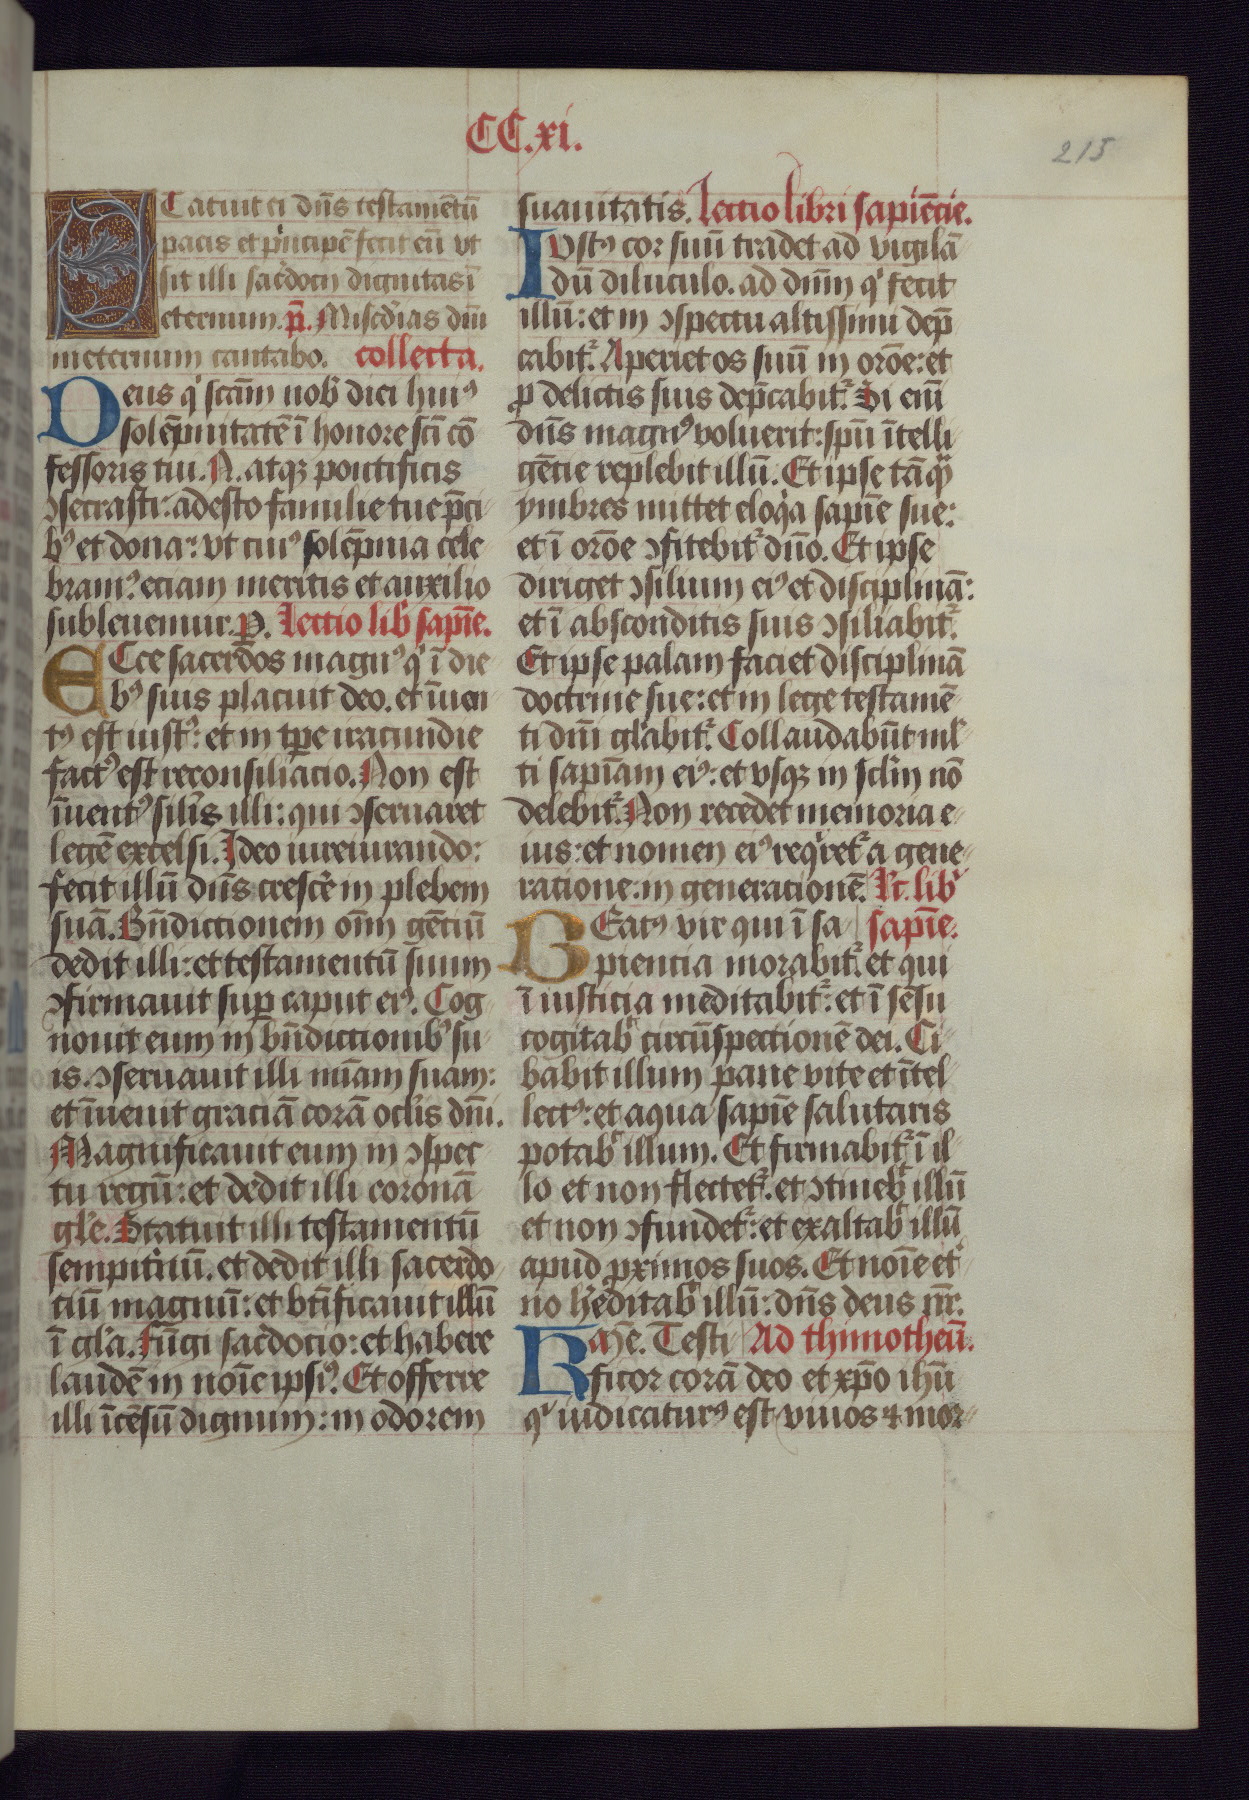 CC.xi.
215
STatuit ei dn̄s testamētū
pacis et p̄ncipē fecit eū vt
sit illi sac̄docij dignitas ī
eternum. p̄. Misc̄dias dn̄i
in eternum cantabo. collecta.
Deus qͥ sc̄am nob̄ diei huiꝰ
solēpnitatē ī honore sc̄i cō
fessoris tui. N. atqꝫ pontificis
ꝯsecrasti: adesto familie tue p̄ci
bꝰ et dona: vt cuiꝰ solēpnia cele
bramꝰ: eciam meritis et auxilio
subleuemur. P. Lectio lib̄ sapīe.
ECce sacerdos magnꝰ qͥ ī die
bꝰ suis placuit deo. et īuen
tꝰ est iustꝰ: et in tp̄e iracundie
factꝰ est reconsiliacio. Non est
īuentꝰ silīs illi: qui ꝯseruaret
legē excelsi. Ideo iureiurando:
fecit illū dn̄s cresc̄e in plebem
suā. Bn̄dictionem om̄ gētiū
dedit illi: et testamentū suum
ꝯfirmauit sup̄ caput eiꝰ. Cog
nouit eum in bn̄dictionibꝰ su
is. ꝯseruauit illi mīam suam:
et īuenit graciā corā oclis dn̄i.
Magnificauit eum in ꝯspec
tu regū: et dedit illi coronā
gl̄e. Statuit illi testamentū
sempit̄nū. et dedit illi sacerdo
ciū magnū: et bt̄ificauit illū
ī gl̄a. Fūgi sac̄docio: et habere
laudē in noīe ipsiꝰ. Et offerre
illi īcēsū dignum: in odorem
suauitatis. Lectio libri sapiēcie.
IVstꝰ cor suū tradet ad vigilā
dū diluculo. ad dn̄m qͥ fecit
illū: et in ꝯspectu altissimi dep̄
cabit᷑. Aperiet os suū in orōe: et
ꝓ delictis suis dep̄cabit᷑. Si enī
dn̄s magnꝰ voluerit: spū ītelli
gētie replebit illū. Et ipse tāqͣ
ymbres mittet eloqͥa sapīe sue:
et ī orōe ꝯfitebit᷑ dn̄o. Et ipse
diriget ꝯsilium eiꝰ et disciplinā:
et ī absconditis suis ꝯsiliabit᷑.
Et ipse palam faciet disciplinā
doctrine sue: et in lege testamē
ti dn̄i gl̄abit᷑. Collaudabūt ml̄
ti sapīam eiꝰ: et vsqꝫ in sclm̄ nō
delebit᷑. Non recedet memoria e
ius: et nomen eiꝰ reqͥret᷑ a gene
ratione: in generationē. It. lib̄
BEatꝰ vir qui ī sa sapīe.
pientia morabit᷑. et qui
ī iusticia meditabit᷑: et ī sēsu
cogitab͛ circūspectionē dei. Ci
babit illum pane vite et ītel
lectꝰ: et aqua sapīe salutaris
potab͛ illum. Et firmabit᷑ ī il
lo et non flectet᷑. et ꝯtineb͛ illū
et non ꝯfundet᷑: et exaltab͛ illū
apud ꝓximos suos. Et noīe et͛
no h̄editab͛ illū: dn̄s deus nr̄.
KArīe. Testi Ad thimotheū.
ficor corā deo et xp̄o ihū
qͥ iudicaturꝰ est viuos ⁊ mor